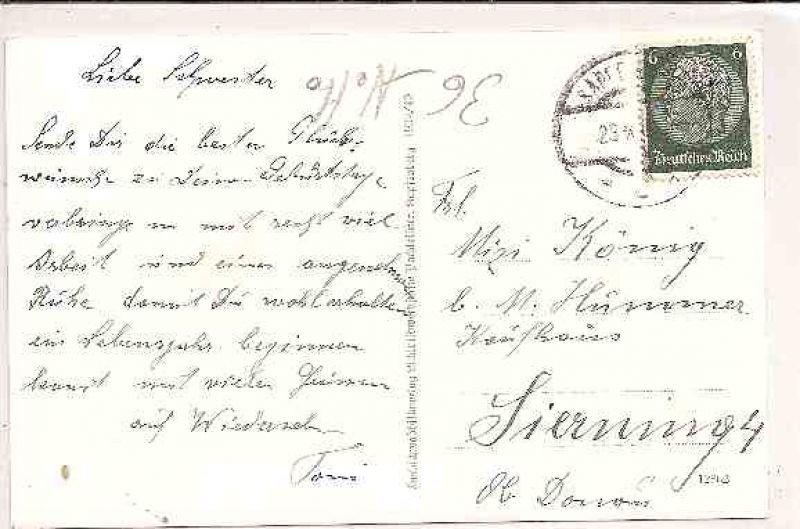 Liebe Schwester
Sende Dir die besten Glück-
wünsche zu Deinem Geburtstage
verbringe in mit recht viel
Arbeit und einer angenehmen
Ruhe damit Du wohlerhalten
ein Lebensjahr beginnen
kannst mit vielen
auf Wiedersehn
Toni
36
6 6
Deutsches Reich
23
Frl.
Mizi König
b. M. Hummer
Kaufhaus
Sierning 4
Ob Donau